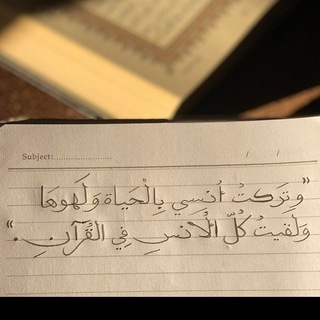 Subject:........................ / /
"وَتَرَكتُ أُنسِي بِالْحَيَاة وَلَهوِهَا
وَلَقيتُ كُلّ الأُنسِ فِي القُرْآنِ."